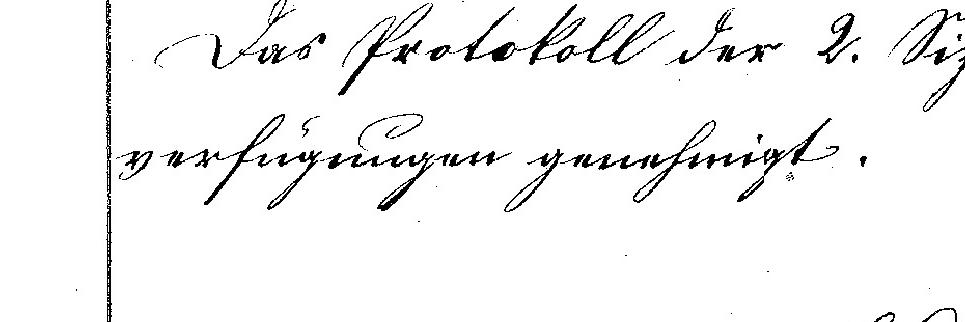 Das Protokoll der 2. Siz
verfügungen genehmigt.